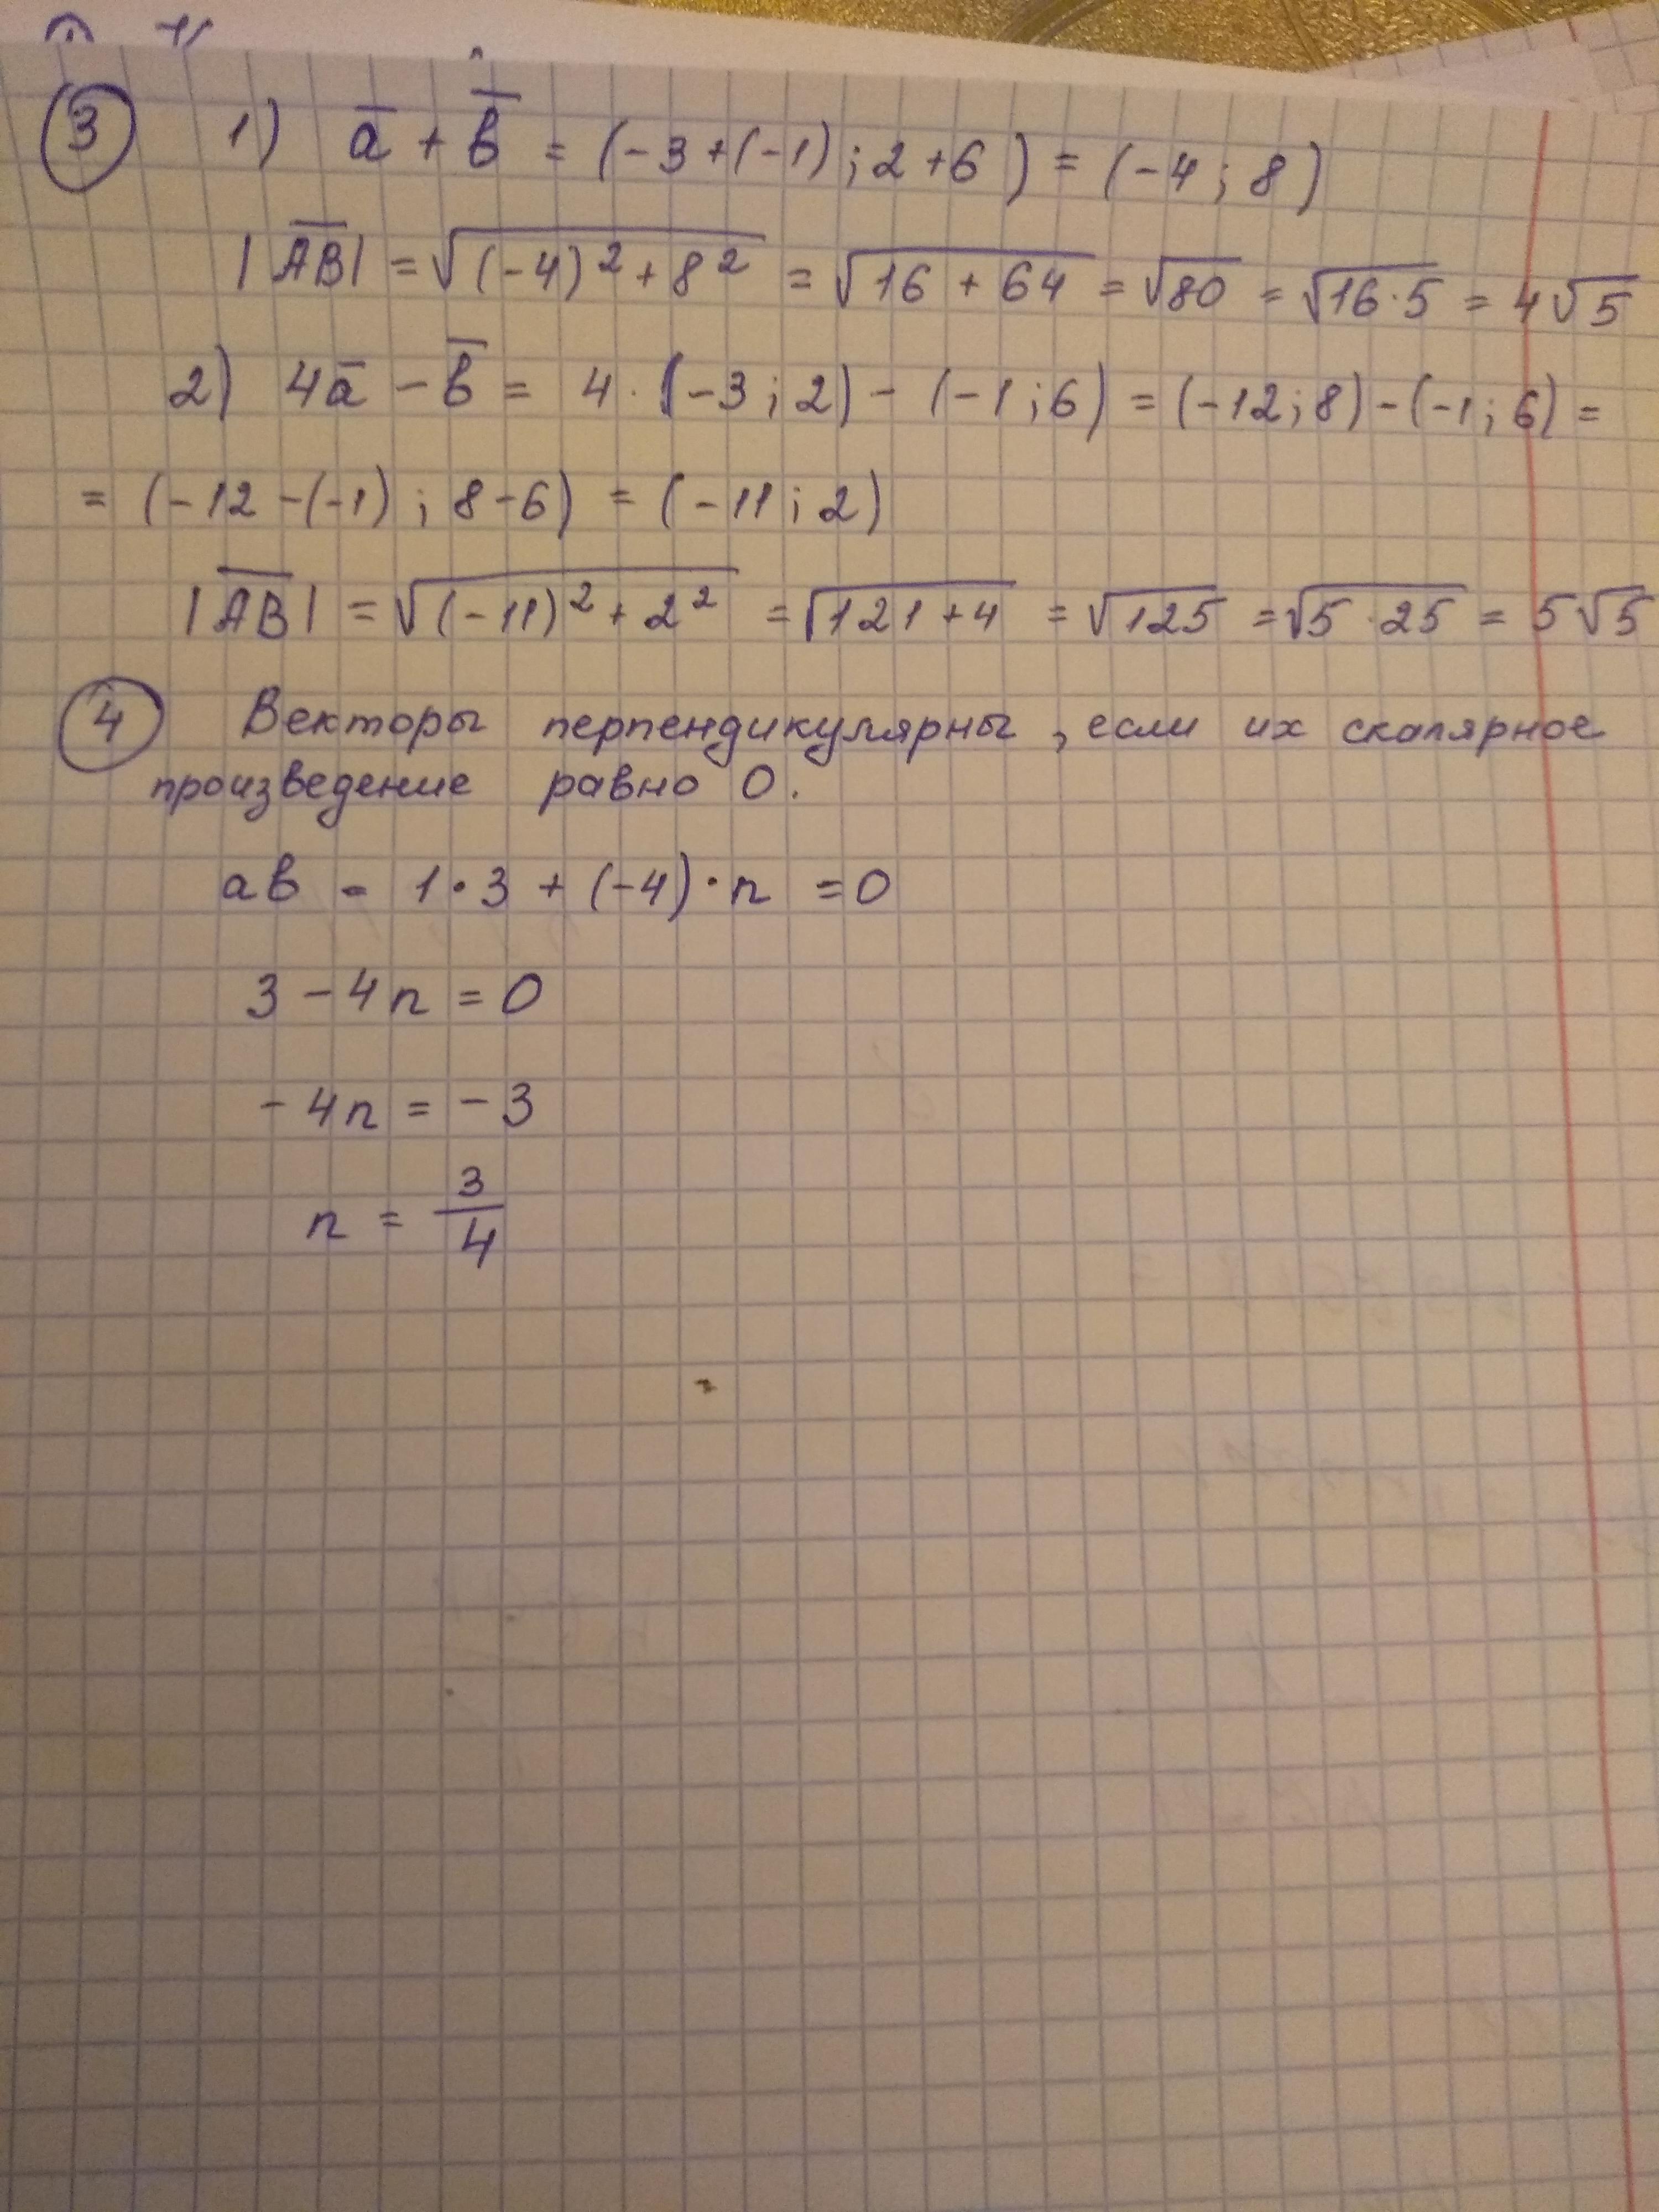 3 1) a̅ + b̅ = (-3+(-1); 2+6) = (-4; 8)
|A̅B̅| = √((-4)² + 8²) = √(16 + 64) = √80 = √(16·5) = 4√5
2) 4a̅ - b̅ = 4·(-3; 2) - (-1; 6) = (-12; 8) - (-1; 6) =
= (-12-(-1); 8-6) = (-11; 2)
|A̅B̅| = √((-11)² + 2²) = √(121+4) = √125 = √(5·25) = 5√5
4 Векторы перпендикулярны, если их скалярное
произведение равно 0.
ab = 1·3 + (-4)·n = 0
3 - 4n = 0
-4n = -3
n = 3/4